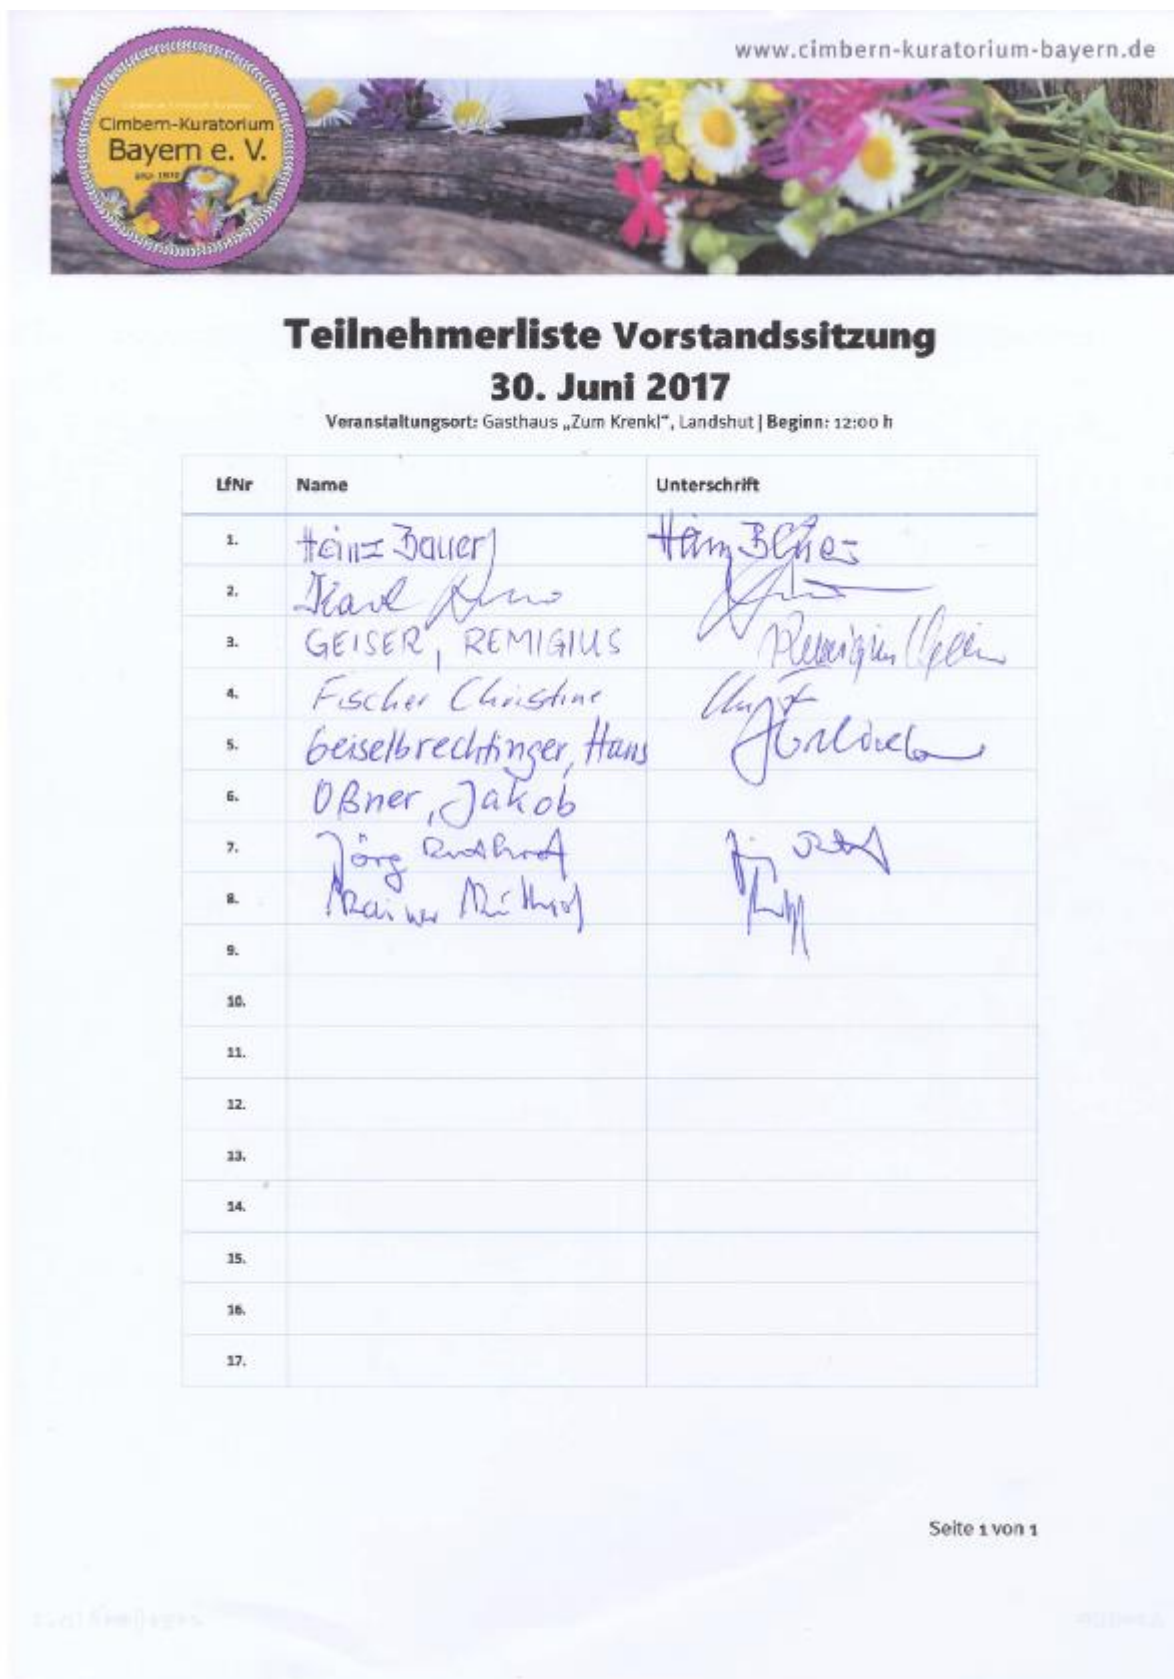 www.cimbern-kuratorium-bayern.de
Cimbern-Kuratorium
Bayern e. V.
Teilnehmerliste Vorstandssitzung
30. Juni 2017
Veranstaltungsort: Gasthaus „Zum Krenkl“, Landshut | Beginn: 12:00 h
LfNr Name Unterschrift
1. Heinz Bauer Heinz Bauer
2. Karl
3. GEISER, REMIGIUS Remigius Geiser
4. Fischer Christine
5. Geiselbrechtinger, Hans
6. Oßner, Jakob
7. Jörg
8. Rainer
9.
10.
11.
12.
13.
14.
15.
16.
17.
Seite 1 von 1